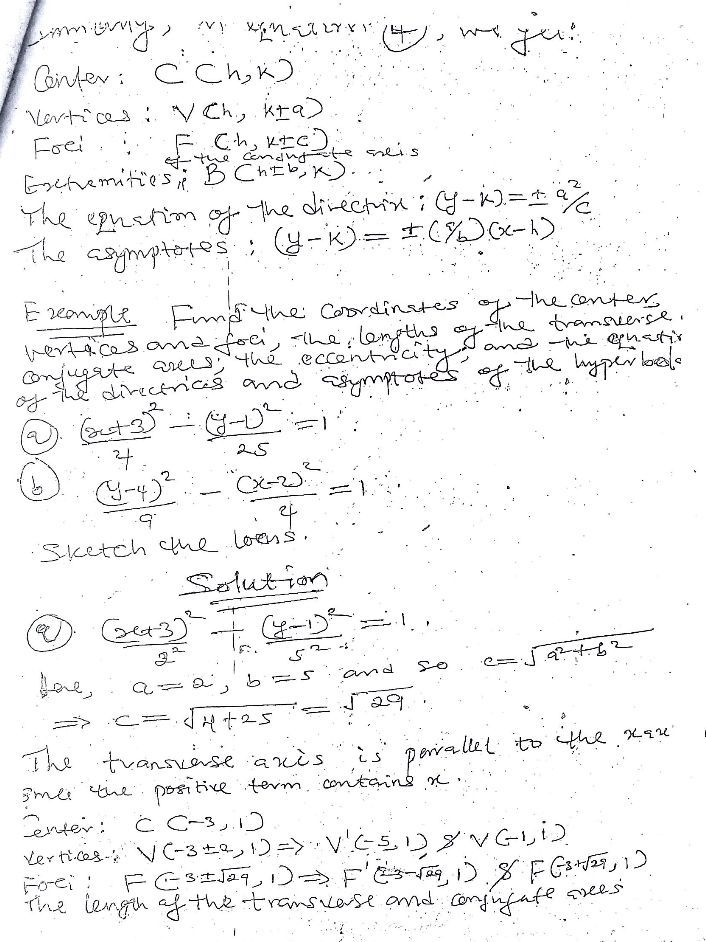 in equation (4), we get:
Center: C(h, k)
Vertices: V(h, k±a)
Foci: F(h, k±c)
of the conjugate axis
Extremities: B(h±b, k)
The equation of the directrix: (y-k) = ± a²/c
The asymptotes: (y-k) = ±(a/b)(x-h)
Example Find the coordinates of the center,
vertices and foci, the lengths of the transverse,
conjugate axes, the eccentricity, and the equatio
of the directrices and asymptotes of the hyperbola
(a) (x+3)²/4 - (y-1)²/25 = 1
(b) (y-4)²/9 - (x-2)²/4 = 1
Sketch the locus.
Solution
(a) (x+3)²/2² - (y-1)²/5² = 1.
Here, a=2, b=5 and so c=√a²+b²
⇒ c = √4+25 = √29.
The transverse axis is parallel to the x ax
since the positive term contains x.
Center: C(-3, 1)
Vertices: V(-3±2, 1) ⇒ V'(-5, 1) & V(-1, 1)
Foci: F(-3±√29, 1) ⇒ F'(-3-√29, 1) & F(-3+√29, 1)
The length of the transverse and conjugate axes